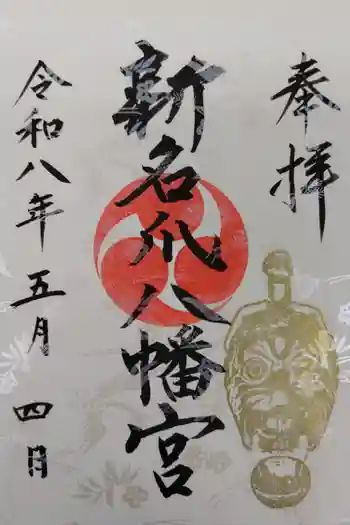 奉拝
新名爪八幡宮
令和八年五月四日